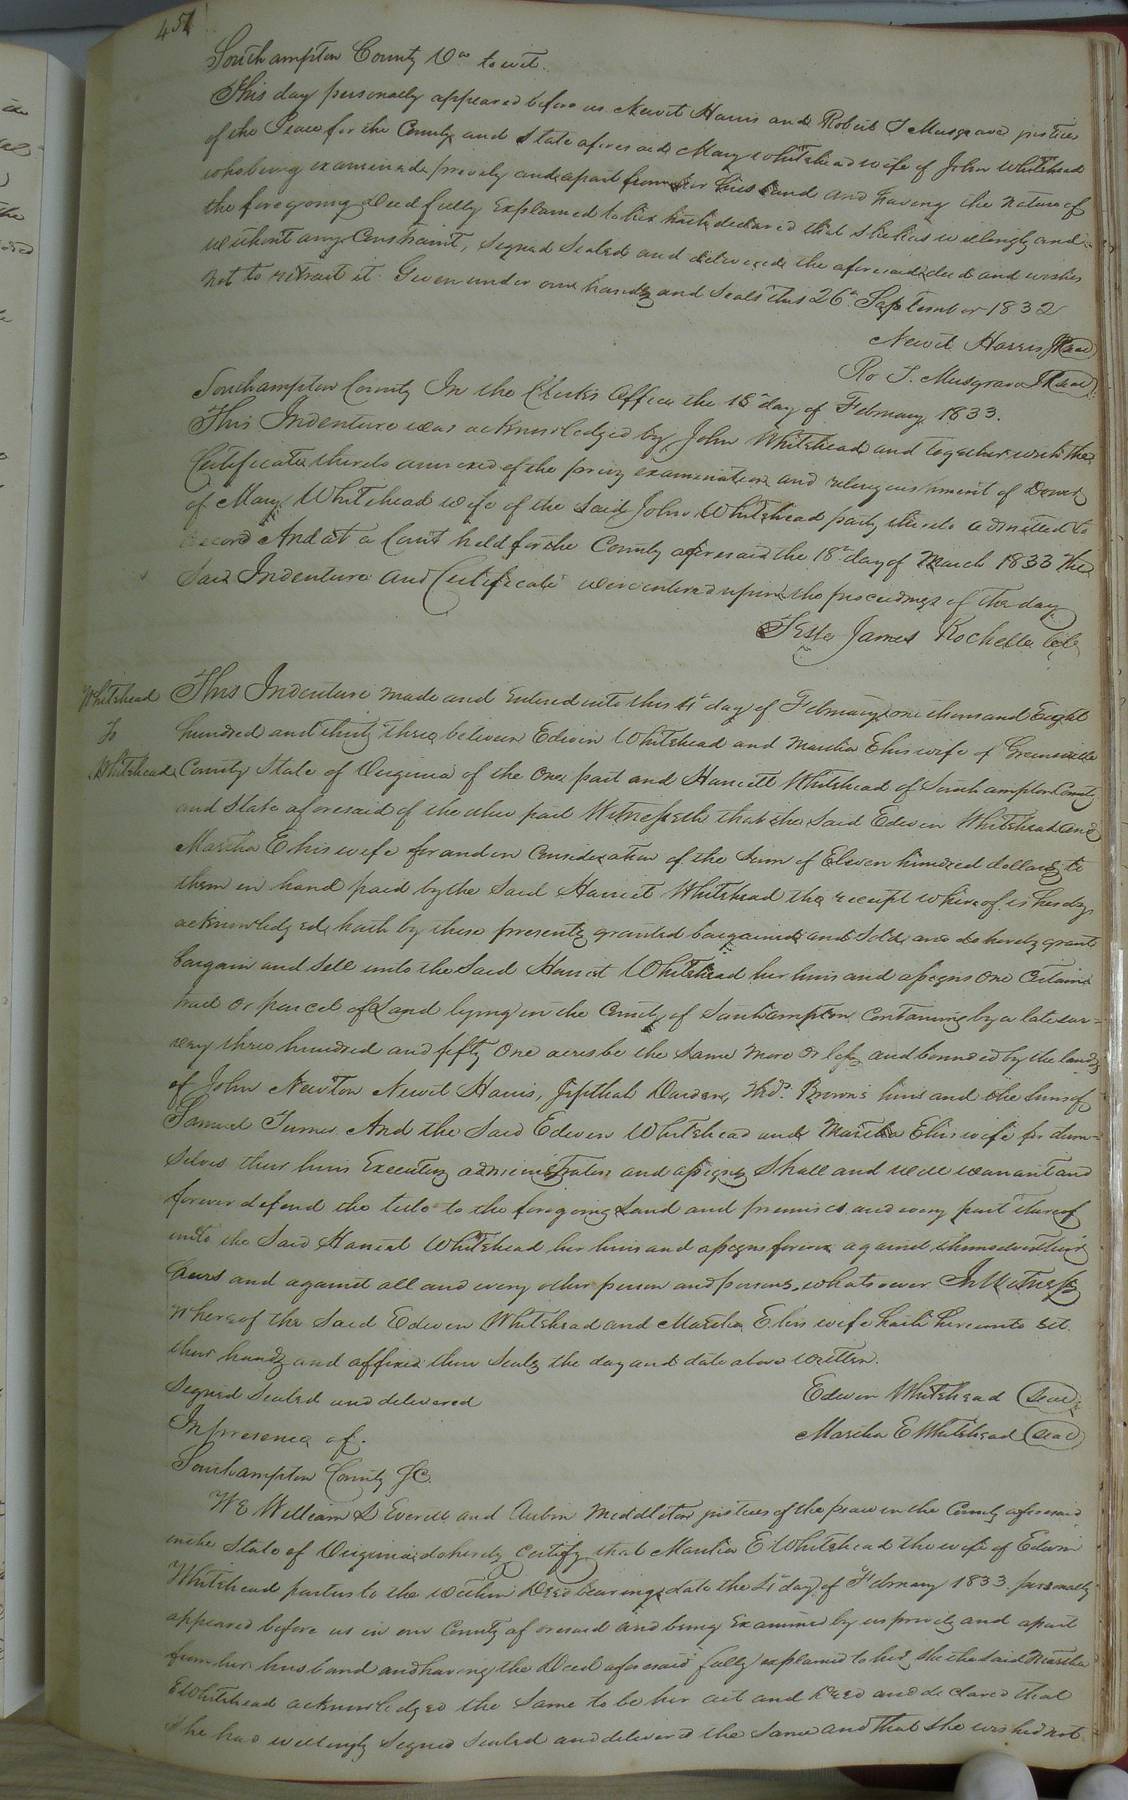 451
Southampton County Va to wit.
This day personally appeared before us Newit Harris and Robert T Musgrave justices
of the Peace for the County and State aforesaid Mary Whitehead wife of John Whitehead
who being examined privily and apart from her husband and having the nature of
the foregoing Deed fully Explained to her hath declared that she has willingly and
without any Constraint, Signed Sealed and delivered the aforesaid deed and wishes
not to retract it. Given under our hands and Seals this 26th September 1832
Newit Harris (Seal)
Ro T. Musgrave (Seal)
Southampton County In the Clerks Office the 18th day of February 1833.
This Indenture was acknowledged by John Whitehead and together with the
Certificate thereto annexed of the privy examination and relinquishment of Dower
of Mary Whitehead wife of the Said John Whitehead party thereto admitted to
Record And at a Court held for the County aforesaid the 18th day of March 1833 The
Said Indenture and Certificate were entered upon the proceedings of the day
Teste James Rochelle Clk
Whitehead
To
Whitehead
This Indenture made and Entered into this 4th day of February one thousand Eight
hundred and thirty three between Edwin Whitehead and Martha E his wife of Greensville
County State of Virginia of the One part and Harriett Whitehead of Southampton County
and State aforesaid of the other part Witnesseth that the Said Edwin Whitehead and
Martha E his wife for and in Consideration of the Sum of Eleven hundred dollars to
them in hand paid by the Said Harriet Whitehead the receipt whereof is hereby
acknowledged, hath by these presents granted bargained and Sold and do hereby grant
bargain and Sell unto the Said Harriet Whitehead her heirs and assigns One Certain
tract or parcel of Land lying in the County of Southampton Containing by a late sur=
vey three hundred and fifty One acres be the Same more or less and bounded by the lands
of John Newton Newit Harris, Jepthah Darden, Thos. Brown's heirs and the heirs of
Samuel Turner And the Said Edwin Whitehead and Martha E his wife for them=
selves their heirs Executors administrators and assigns Shall and will warrant and
forever defend the title to the foregoing Land and premises and every part thereof
unto the Said Harriet Whitehead her heirs and assigns forever against themselves their
heirs and against all and every other person and persons whatsoever In Witness
Whereof the Said Edwin Whitehead and Martha E his wife hath hereunto Set
their hands and affixed their Seals the day and date above Written.
Signed Sealed and delivered
Edwin Whitehead (Seal)
In presence of.
Martha E Whitehead (Seal)
Southampton County SC.
We William D Everett and Aubin Middleton justices of the peace in the County aforesaid
in the State of Virginia do hereby Certify that Martha E Whitehead the wife of Edwin
Whitehead parties to the Within Deed bearing date the 4th day of February 1833 personally
appeared before us in our County aforesaid and being Examined by us privily and apart
from her husband and having the Deed aforesaid fully explained to her, She the said Martha
E Whitehead acknowledged the Same to be her act and Deed and declared that
She had willingly Signed Sealed and delivered the Same and that She wished not